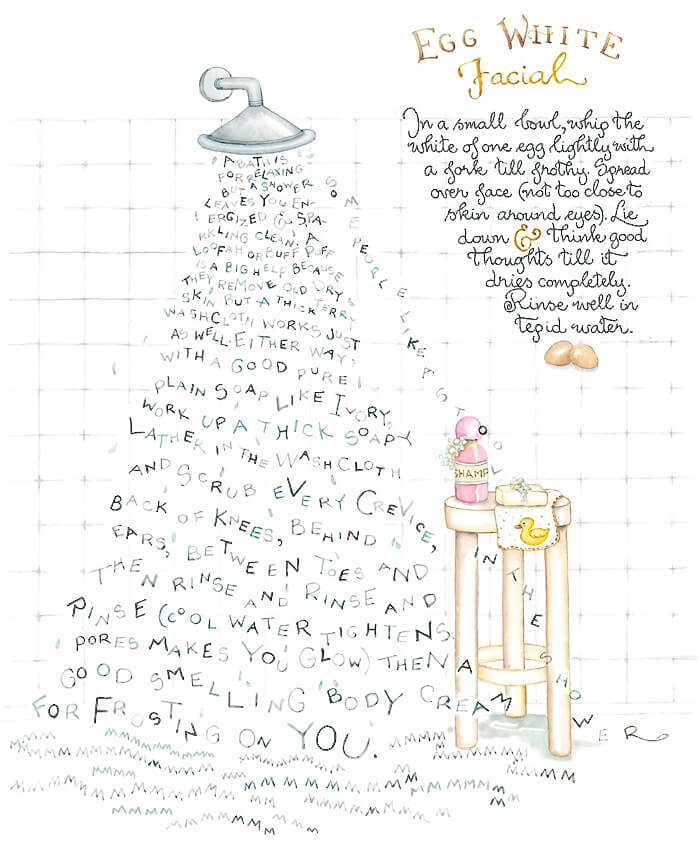 EGG WHITE
Facial
In a small bowl, whip the
white of one egg lightly with
a fork till frothy. Spread
over face (not too close to
skin around eyes). Lie
down & think good
thoughts till it
dries completely.
Rinse well in
tepid water.
A BATH IS
FOR RELAXING
BUT A SHOWER
LEAVES YOU EN-
ERGIZED & SPA-
RKLING CLEAN! A
LOOFAH OR BUFF PUFF
IS A BIG HELP BECAUSE
THEY REMOVE OLD DRY
SKIN BUT A THICK TERRY
WASHCLOTH WORKS JUST
AS WELL. EITHER WAY,
WITH A GOOD PURE
PLAIN SOAP LIKE IVORY,
WORK UP A THICK SOAPY
LATHER IN THE WASHCLOTH
AND SCRUB EVERY CREVICE,
BACK OF KNEES, BEHIND
EARS, BETWEEN TOES AND
THEN RINSE AND RINSE AND
RINSE (COOL WATER TIGHTENS
PORES MAKES YOU GLOW) THEN A
GOOD SMELLING BODY CREAM
FOR FROSTING ON YOU.
SOME PEOPLE LIKE A STOOL IN THE SHOWER
SHAMP
MMMM